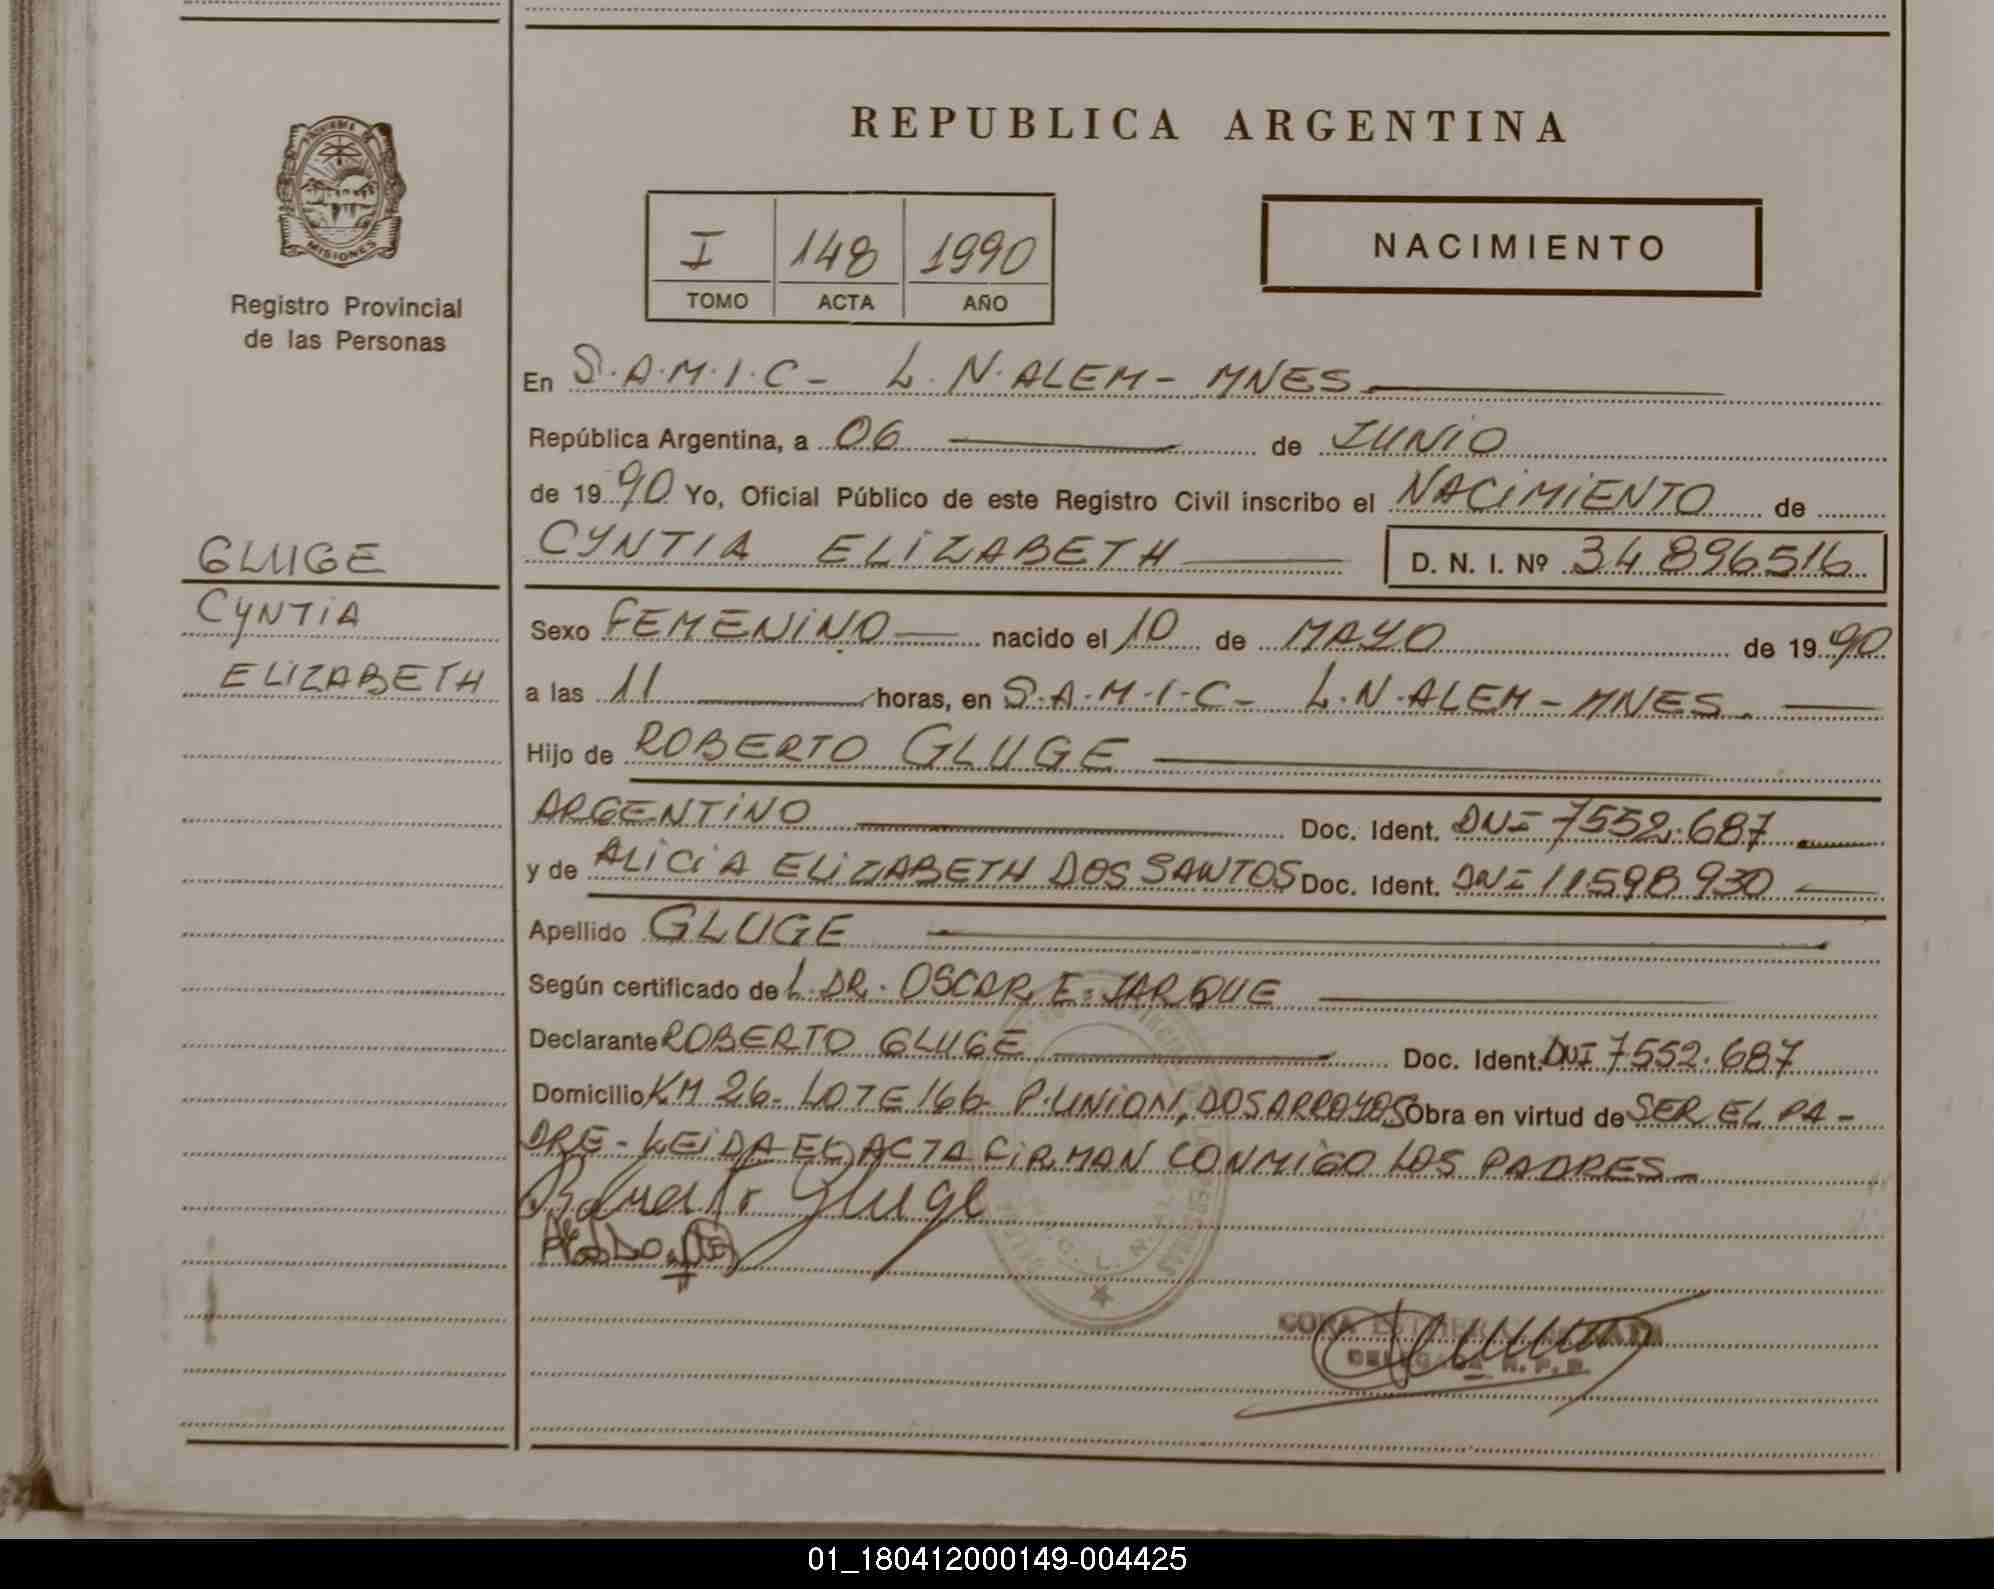 REPUBLICA ARGENTINA
MISIONES
Registro Provincial
de las Personas
I 148 1990
TOMO ACTA AÑO
NACIMIENTO
En S.A.M.I.C- L.N.ALEM- MNES
República Argentina, a 06 de JUNIO
de 1990 Yo, Oficial Público de este Registro Civil inscribo el NACIMIENTO de
CYNTIA ELIZABETH D. N. I. Nº 34 896516
GLUGE
CYNTIA
ELIZABETH
Sexo FEMENINO nacido el 10 de MAYO de 1990
a las 11 horas, en S.A.M.I.C- L.N.ALEM-MNES.
Hijo de ROBERTO GLUGE
ARGENTINO Doc. Ident. DNI 7552.687
y de ALICIA ELIZABETH DOS SANTOS Doc. Ident. DNI 11598930
Apellido GLUGE
Según certificado de L.DR. OSCAR E. JARQUE
Declarante ROBERTO GLUGE Doc. Ident. DNI 7552.687
Domicilio KM 26- LOTE 166- P.UNION, DOS ARROYOS Obra en virtud de SER EL PA-
DRE- LEIDA EL ACTA FIRMAN CONMIGO LOS PADRES-
Roberto Gluge
DELEGADA R. P. P.
01_180412000149-004425